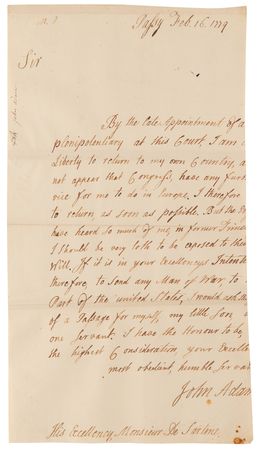 Passy Feb. 16. 1779
Sir
By the late Appointment of a
plenipotentiary at this Court, I am a
Liberty to return to my own Country, a
not appear that Congress, have any furt
vice for me to do in Europe. I therefore
to return, as soon as possible. But the
have heard so much of me, in former Times
I should be very loth to be exposed to their
Will. If it is in your Excellencys Intent
therefore, to send any Man of War, to
Part of the united States, I would ask the
of a Passage for myself, my little son
one servant. I have the Honour to be,
the highest Consideration, your Excelle
most obedient, humble servan
John Adam
His Excellency Monsieur De Sartine.